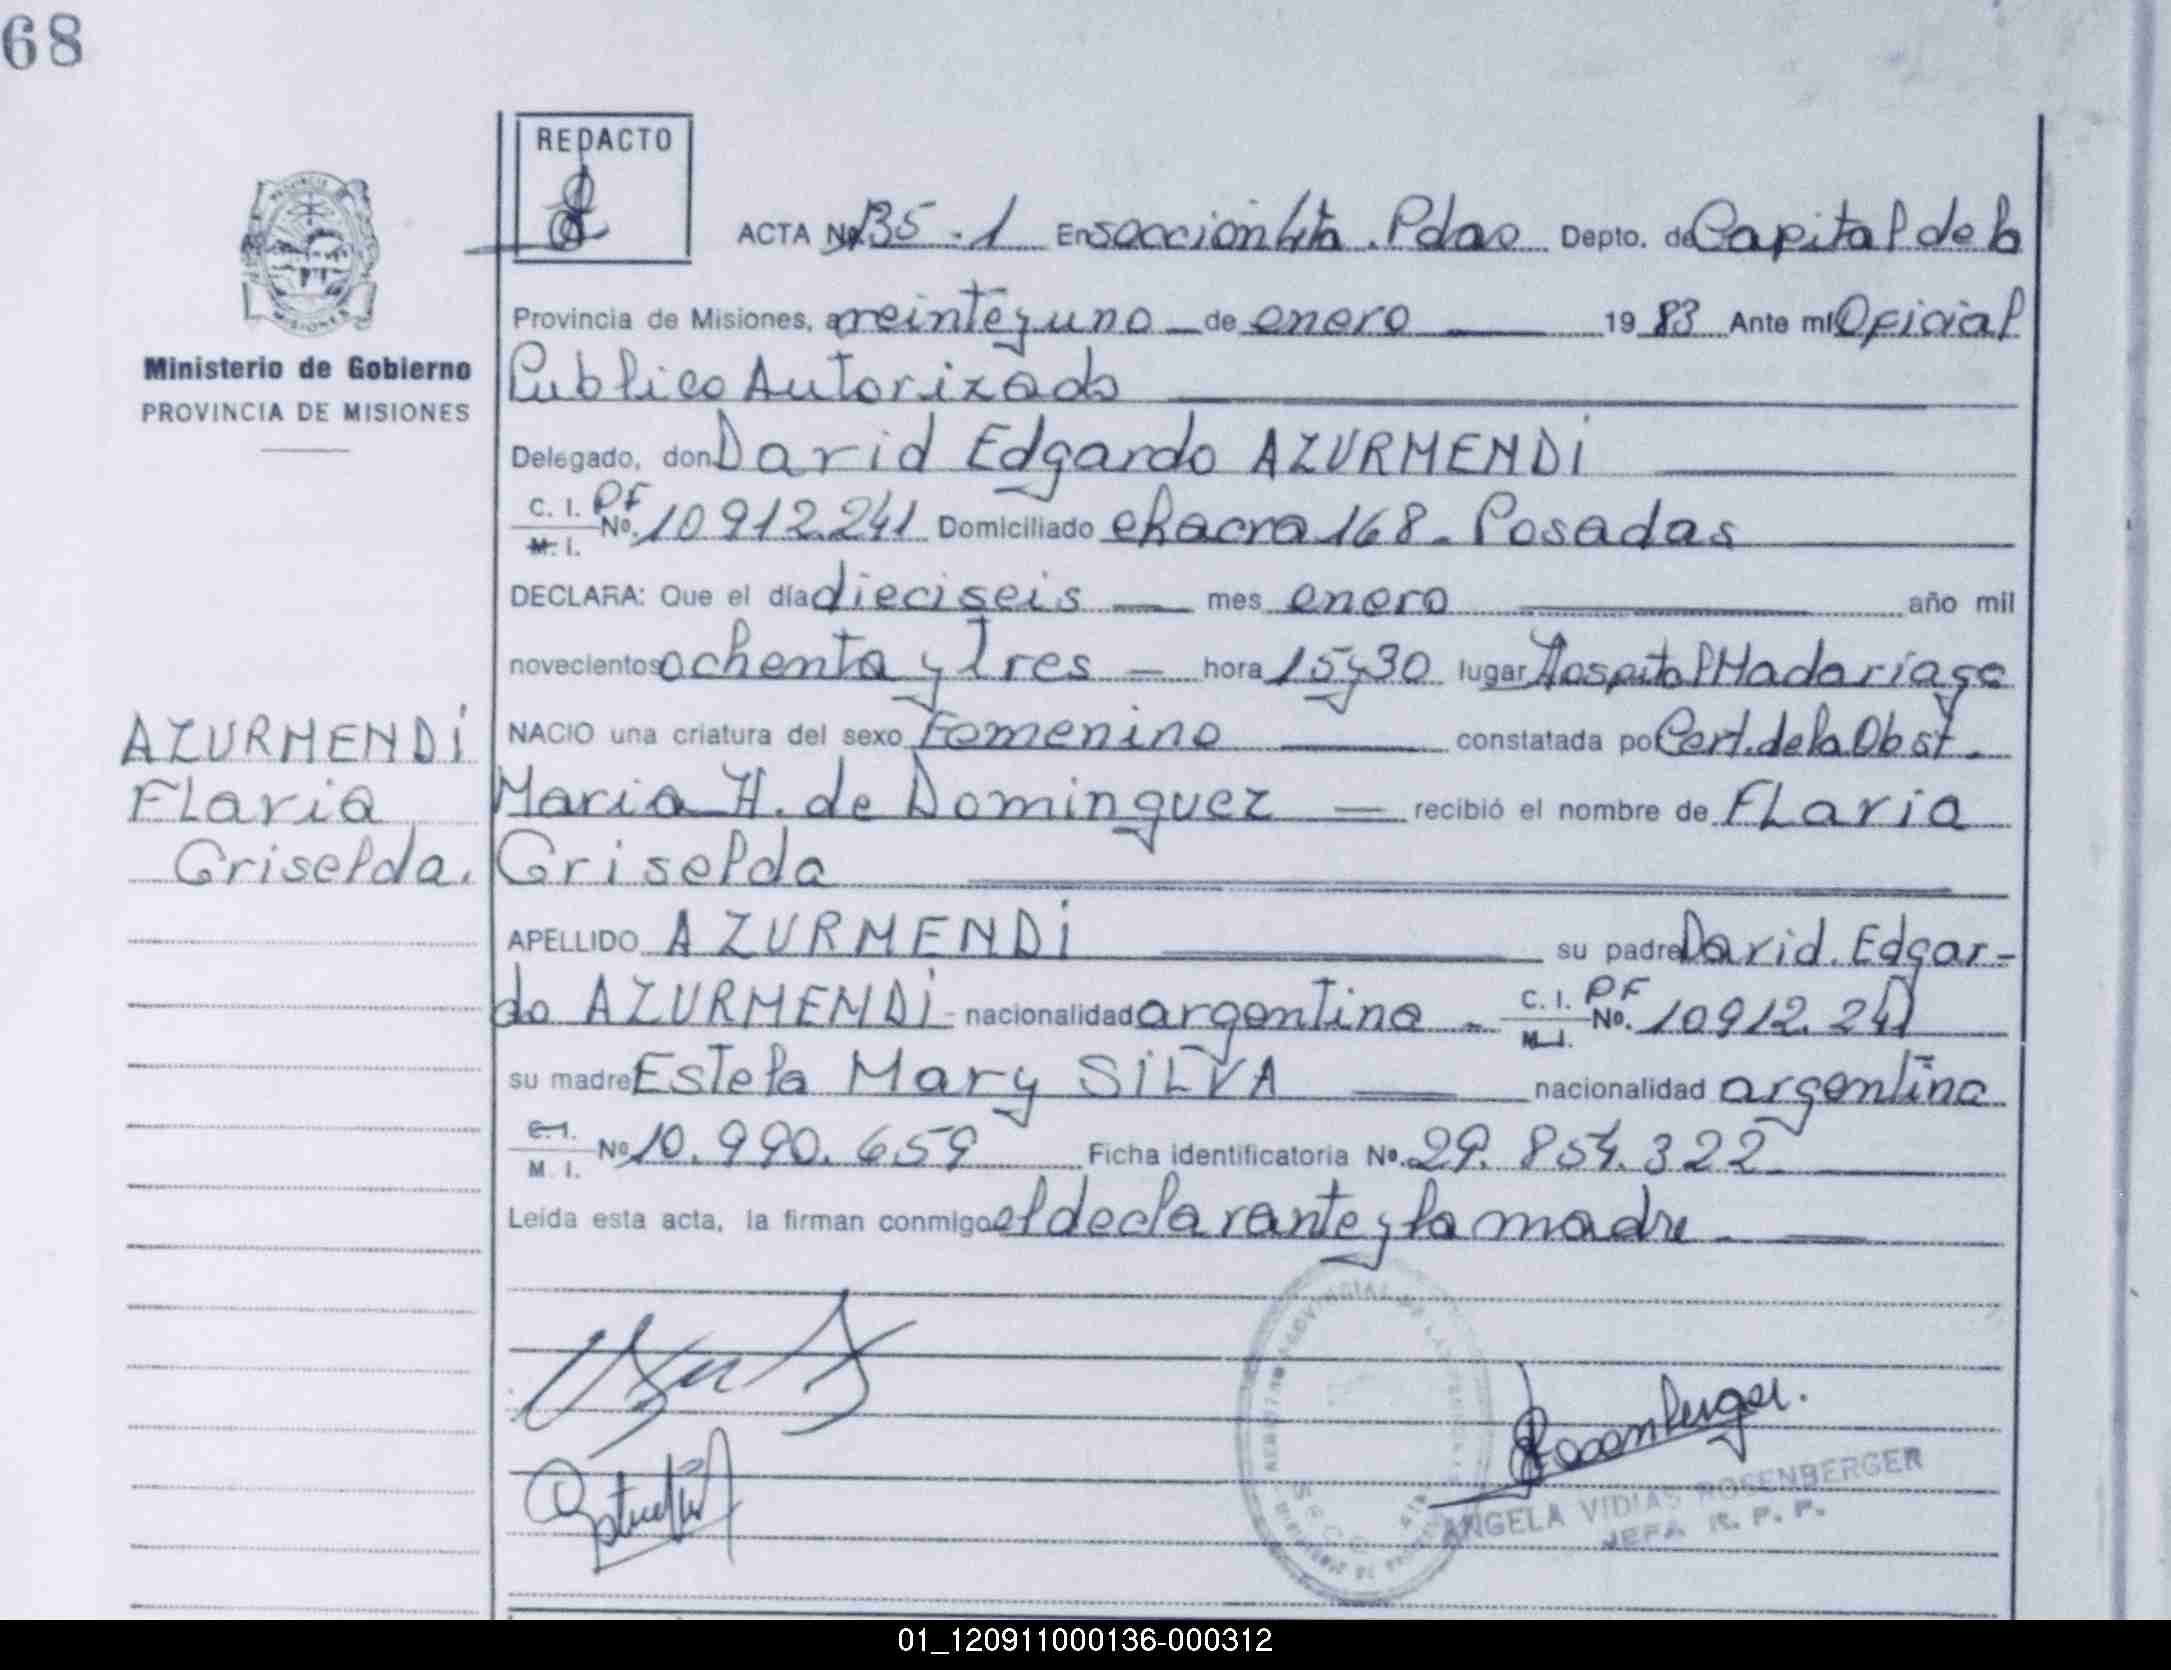 68
REDACTO
ACTA No 135 - 1 En sección 4ta. Pdas Depto. de Capital de la
Provincia de Misiones, a veinteyuno de enero 1983 Ante mí Oficial
Publico Autorizado
Ministerio de Gobierno
PROVINCIA DE MISIONES
Delegado, don David Edgardo AZURMENDI
C. I. PF
M. I. No. 10 912.241 Domiciliado chacra 168. Posadas
DECLARA: Que el día dieciseis mes enero año mil
novecientos ochenta y tres hora 15y30 lugar Hospital Madariaga
NACIO una criatura del sexo Femenino constatada po Cert. de la Obst.
Maria H. de Dominguez recibió el nombre de FLavia
Griselda
AZURMENDI
FLavia
Griselda.
APELLIDO AZURMENDI su padre David. Edgar-
do AZURMENDI nacionalidad argentina C. I. PF M. I. No. 10 912.241
su madre Estela Mary SILVA nacionalidad argentina
C. I. M. I. No 10.990.659 Ficha identificatoria No. 29.854.322
Leída esta acta, la firman conmigo el declarante y la madre
Rosenberger.
ANGELA VIDIAS ROSENBERGER
JEFA R. P. P.
01_120911000136-000312